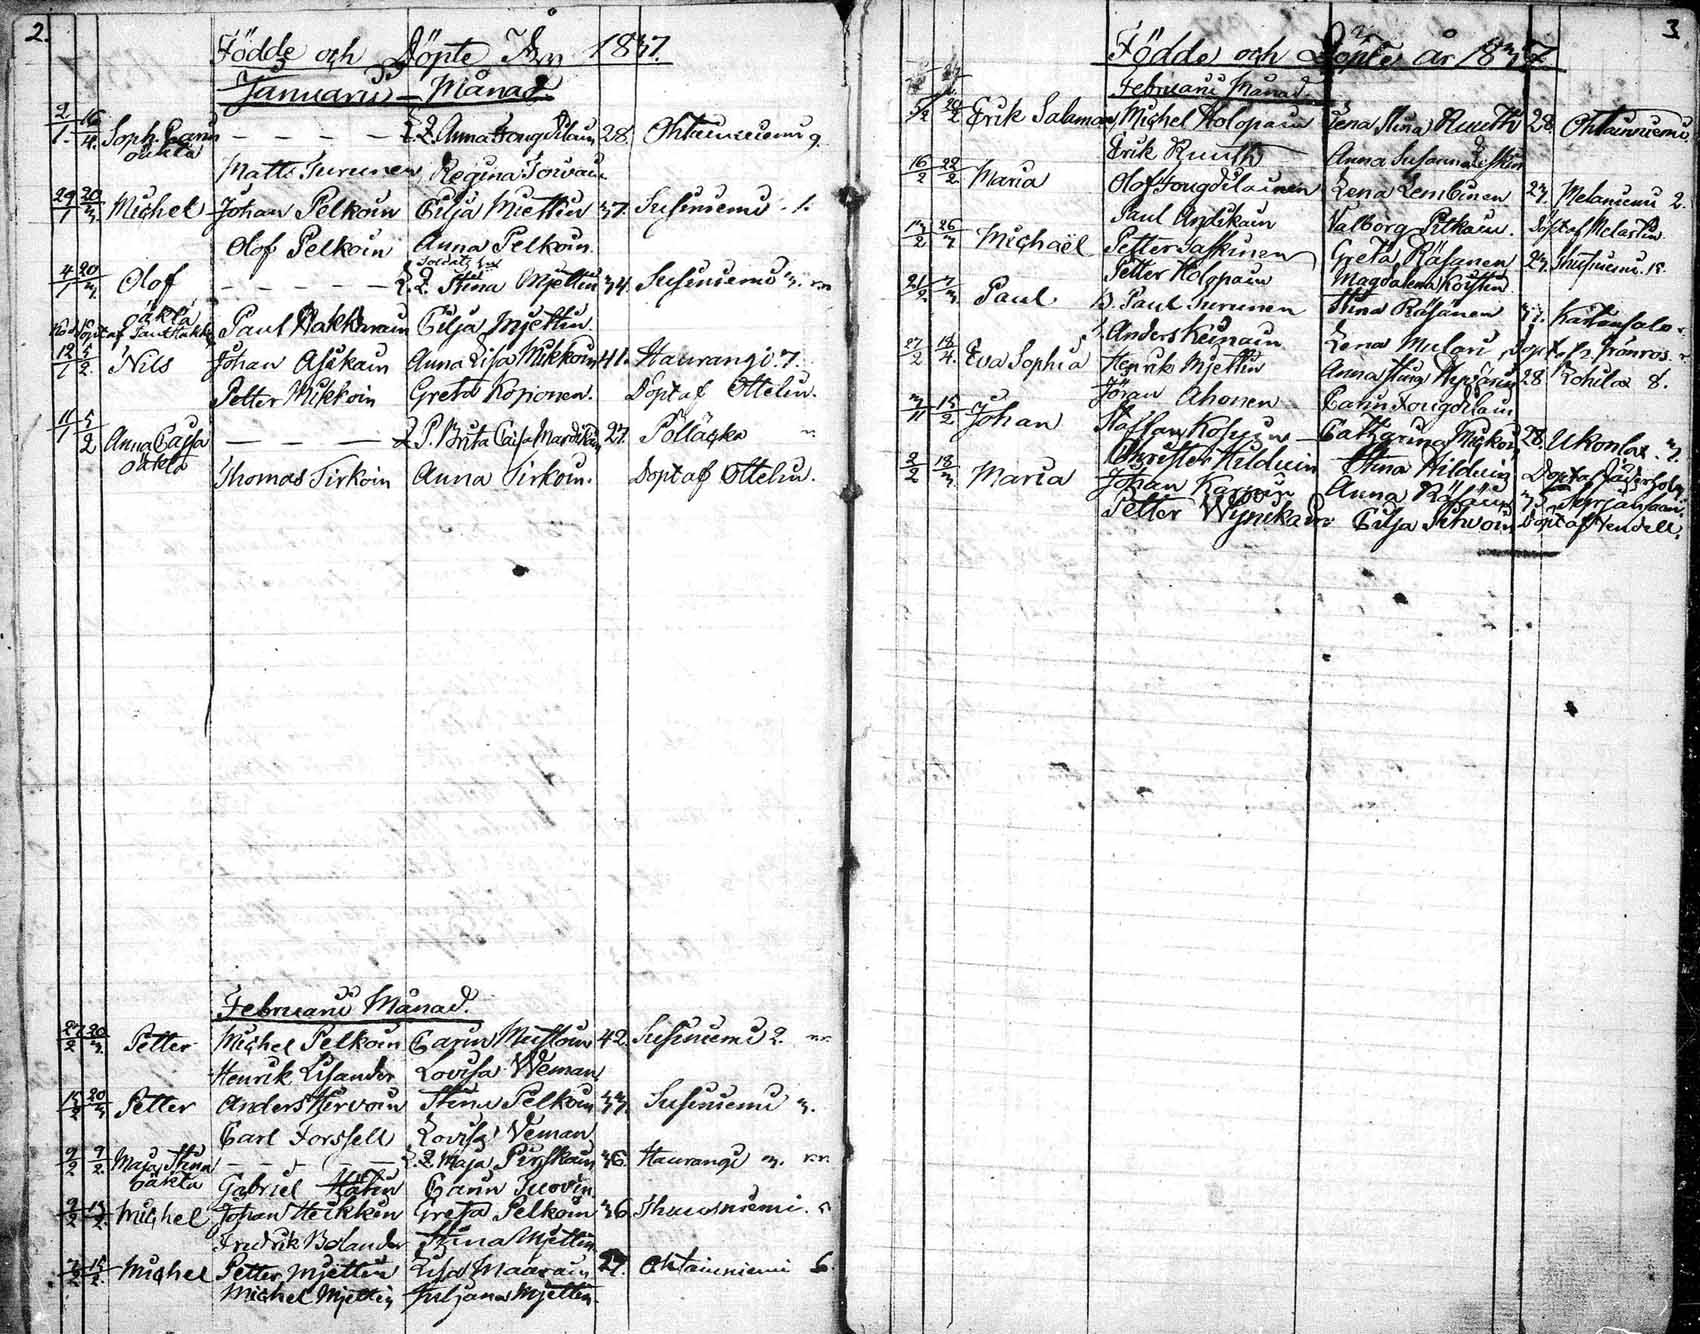 2.
Födde och Döpte År 1837.
Januarii Månad.
2/1 16/4 Soph. Carin L. Q. Anna Jougdilain 28. Ohtainniemi 9.
oäkta
Matts Turunen Regina Toivain
29/1 20/3 Michel Johan Pelkoin Cilja Miettin 37. Susiniemi 1.
Olof Pelkoin Anna Pelkoin.
Soldats
4/1 20/3 Olof L. Q. Stina Mjettin 34. Susiniemi 3.
oäkta Paul Hakkarain Cilja Mjettin.
12/1 5/2 Nils Johan Asikain Anna Lisa Mikkoin 41. Haurangi 7.
Petter Mikkoin Greta Kopionen. Döpt af Ottelin.
11/1 5/2 Anna Caisa P. Brita Caisa Mardikain 27. Pollaska
oäkta
Thomas Tirkoin Anna Tirkoin. Döpt af Ottelin.
Februarii Månad.
27/2 20/3 Petter Michel Pelkoin Carin Mustoin 42. Susiniemi 2.
Henrik Lisander Lovisa Weman
15/2 20/3 Petter Anders Hervoin Stina Pelkoin 37. Susiniemi 3.
Carl Forssell Lovisa Veman
9/2 9/2 Maja Stina L. Q. Maja Pirskain 36. Haurangi 3.
oäkta Gabriel Hätin Carin Tuovin
9/2 13/2 Michel Johan Heikkin Greta Pelkoin 36. Thuusniemi. 5
Fredrik Bolander Stina Mjettin
7/2 15/2 Michel Petter Mjettin Lisa Maarain 27. Ohtainniemi 6.
Michel Mjettin Juljana Mjettin.
3
Födde och Döpte år 1837.
Februarii Månad.
5/2 20/2 Erik Salamon Michel Holopain Lena Stina Ruuth 28. Ohtainniemi.
Erik Ruuth Anna Susanna
16/2 22/2 Maria Olof Jougdilainen Lena Lembinen 23. Melaniemi 2.
Paul Asikain Valborg Pitkain. Döpt af Melartin
13/2 26/3 Michaël Petter Saskinen Greta Räsänen 23. Susiniemi. 15.
Petter Holopain Magdalena Korttin
21/2 7/3 Paul B. Paul Turunen Stina Räsänen 37. Kartunsalo
Anders Keinain Lena Mulari Döpt af Fr. Granros
27/2 18/4 Eva Sophia Henrik Mjettin Anna Stina Hyvärin 28 Kohila 8.
Jöran Ahonen Carin Jougdilain
3/2 15/2 Johan Staffan Kosuin Catharina Mickoin 28. Ukonlax 7.
Christer Hilduin Stina Hilduin Döpt af Cäderholm
2/2 18/3 Maria Johan Karvin Anna Räsäin
Petter Wynikain Cilja Pitkoin Döpt af Wendell.